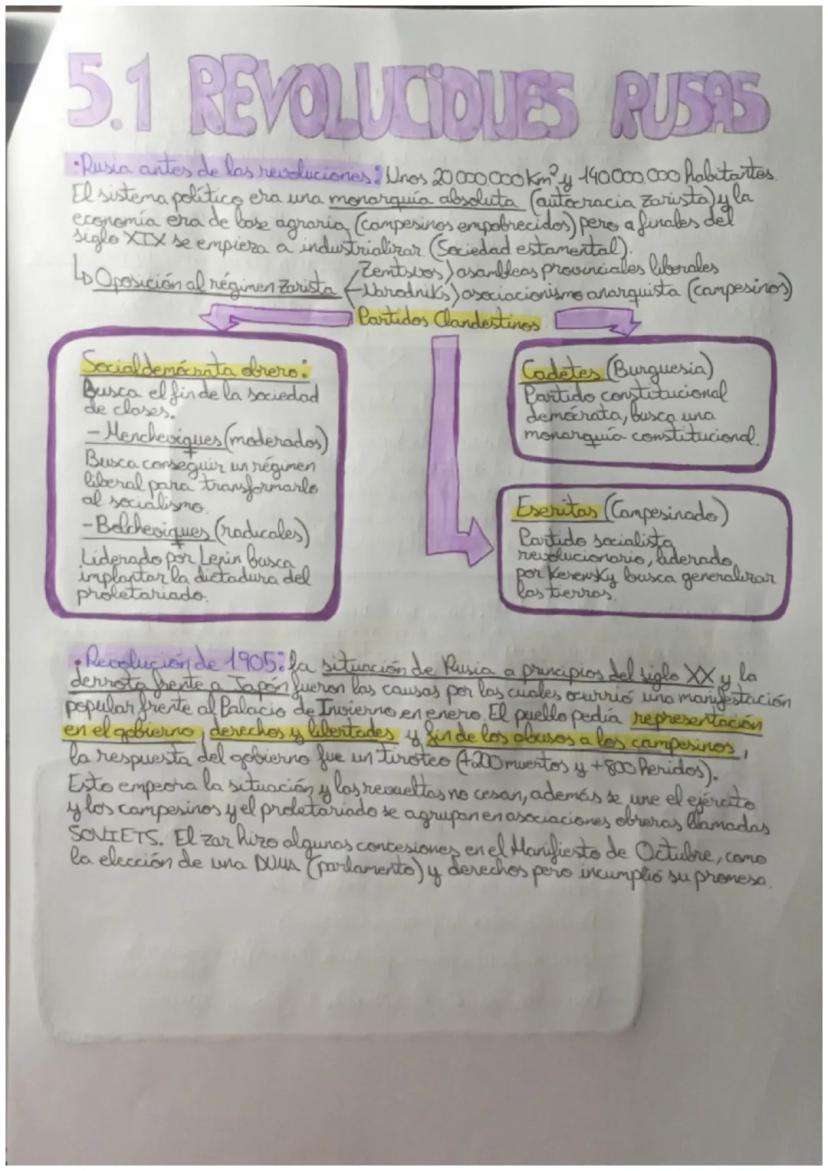 5.1 REVOLUCIONES RUSAS
·Rusia antes de las revoluciones: Unos 20000000 km² y 140000000 habitantes.
El sistema político era una monarquía absoluta (autocracia zarista) y la
economía era de base agraria (campesinos empobrecidos) pero a finales del
siglo XIX se empieza a industrializar (Sociedad estamental).
Zemtsvos) asambleas provinciales liberales
↳ Oposición al régimen zarista
Narodniks) asociacionismo anarquista (campesinos)
Partidos Clandestinos
Socialdemócrata obrero:
Busca el fin de la sociedad
de clases.
- Mencheviques (moderados)
Busca conseguir un régimen
liberal para transformarlo
al socialismo.
- Bolcheviques (radicales)
Liderado por Lenin busca
implantar la dictadura del
proletariado.
Cadetes (Burguesía)
Partido constitucional
demócrata, busca una
monarquía constitucional.
Eseritas (Campesinado)
Partido socialista
revolucionario, liderado
por Kerensky busca generalizar
las tierras.
·Revolución de 1905: la situación de Rusia a principios del siglo XX y la
derrota frente a Japón fueron las causas por las cuales ocurrió una manifestación
popular frente al Palacio de Invierno en enero. El pueblo pedía representación
en el gobierno, derechos y libertades y fin de los abusos a los campesinos,
la respuesta del gobierno fue un tiroteo (+200 muertos y +800 heridos).
Esto empeora la situación y las revueltas no cesan, además se une el ejército
y los campesinos y el proletariado se agrupan en asociaciones obreras llamadas
SOVIETS. El zar hizo algunas concesiones en el Manifiesto de Octubre, como
la elección de una DUMA (parlamento) y derechos pero incumplió su promesa.